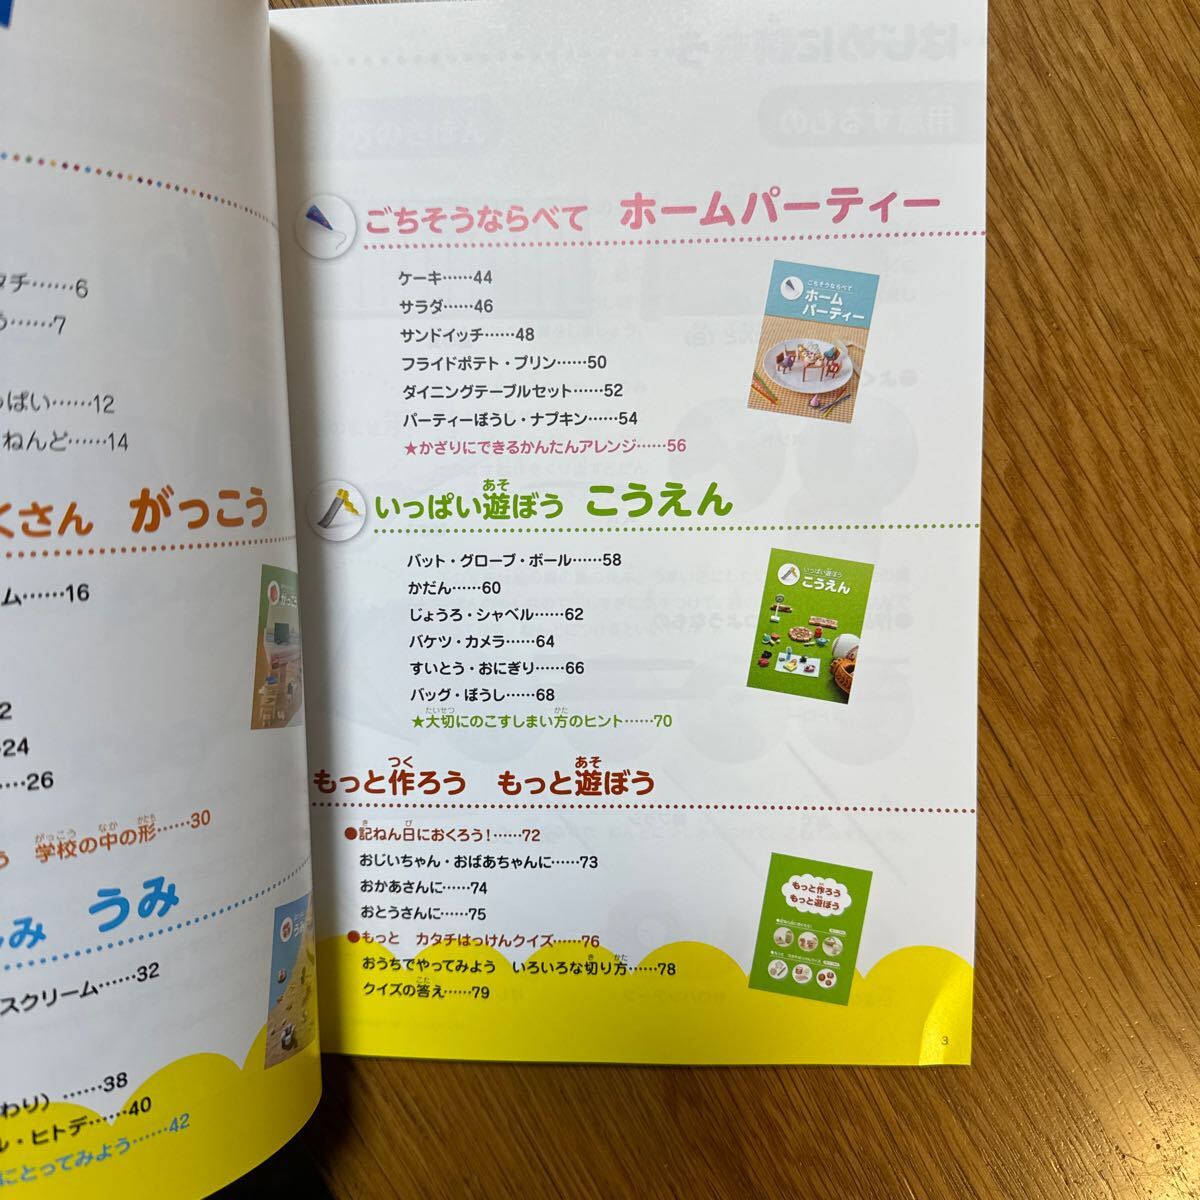 タチ……6
う……7
っぱい……12
ねんど……14
くさん がっこう
ム……16
2
24
26
う 学校の中の形……30
がっこう なか かたち
み うみ
スクリーム……32
わり）……38
ル・ヒトデ……40
にとってみよう……42
ごちそうならべて ホームパーティー
ケーキ……44
サラダ……46
サンドイッチ……48
フライドポテト・プリン……50
ダイニングテーブルセット……52
パーティーぼうし・ナプキン……54
★かざりにできるかんたんアレンジ……56
ごちそうならべて
ホーム
パーティー
あそ
いっぱい遊ぼう こうえん
バット・グローブ・ボール……58
かだん……60
じょうろ・シャベル……62
バケツ・カメラ……64
すいとう・おにぎり……66
バッグ・ぼうし……68
たいせつ かた
★大切にのこすしまい方のヒント……70
いっぱい遊ぼう
こうえん
つく あそ
もっと作ろう もっと遊ぼう
き び
●記ねん日におくろう！……72
おじいちゃん・おばあちゃんに……73
おかあさんに……74
おとうさんに……75
●もっと カタチはっけんクイズ……76
き かた
おうちでやってみよう いろいろな切り方……78
こた
クイズの答え……79
もっと作ろう
もっと遊ぼう
3